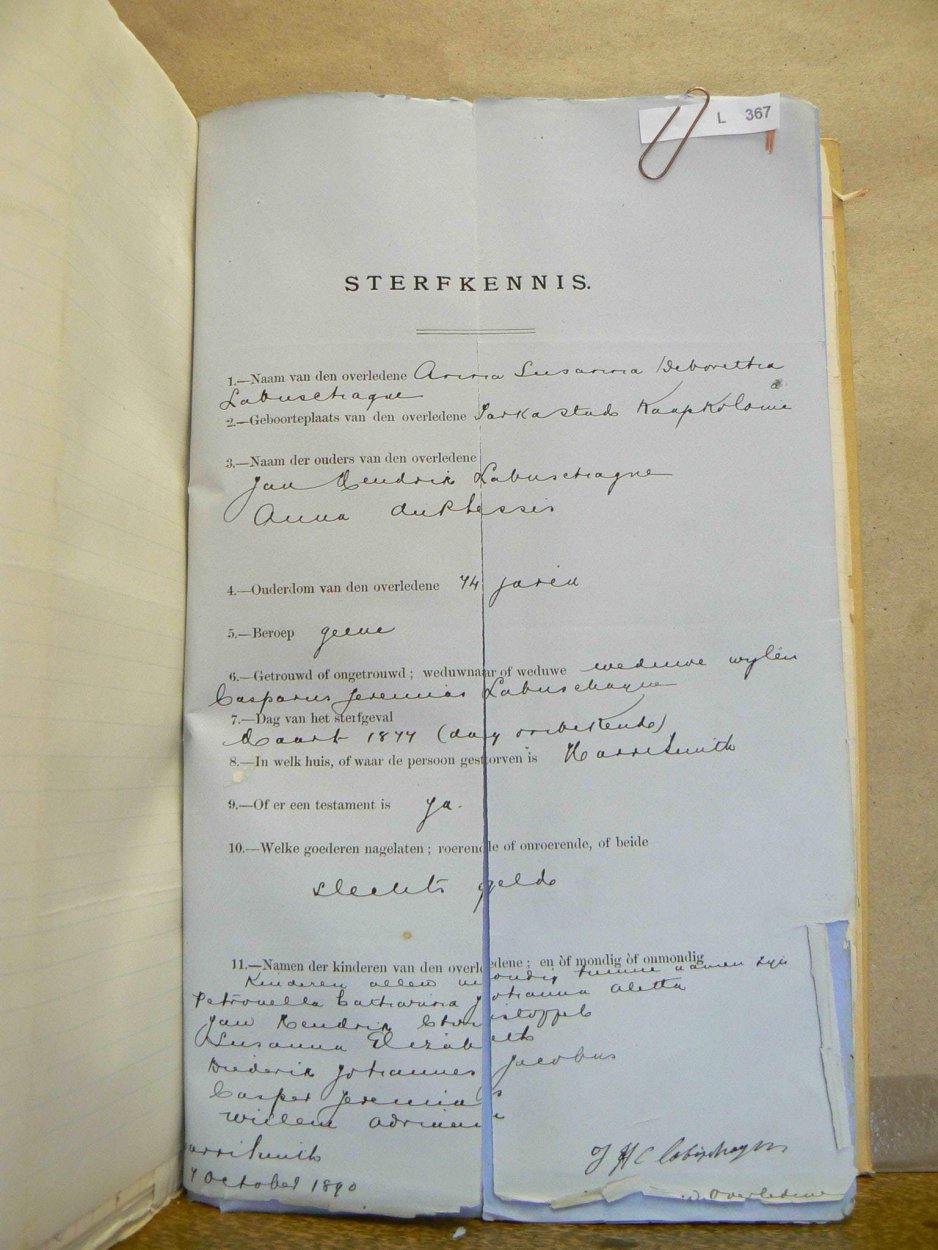 L 367
STERFKENNIS.
1.—Naam van den overledene Anna Susanna Deborettha
Labuschagne
2.—Geboorteplaats van den overledene Tarkastad Kaapkolonie
3.—Naam der ouders van den overledene
Jan Hendrik Labuschagne
Anna duPlessis
4.—Ouderdom van den overledene 74 jaren
5.—Beroep geene
6.—Getrouwd of ongetrouwd; weduwnaar of weduwe weduwe wylen
Casparus Jeremias Labuschagne
7.—Dag van het sterfgeval
Maart 1877 (dag onbekend)
8.—In welk huis, of waar de persoon gestorven is Harrismith
9.—Of er een testament is ja.
10.—Welke goederen nagelaten; roerende of onroerende, of beide
slechts geld
11.—Namen der kinderen van den overledene; en òf mondig òf onmondig
Kinderen allen mondig hunne namen zyn
Petronella Catharina Johanna Aletta
Jan Hendrik Christoffel
Susanna Elizabeth
Diederik Johannes Jacobus
Casper Jeremias
Willem Adriaan
arrismith
October 1890
J H C Labuschagne
Overledene